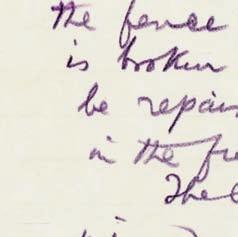 the fence
is broken
be repair
in the fre
The